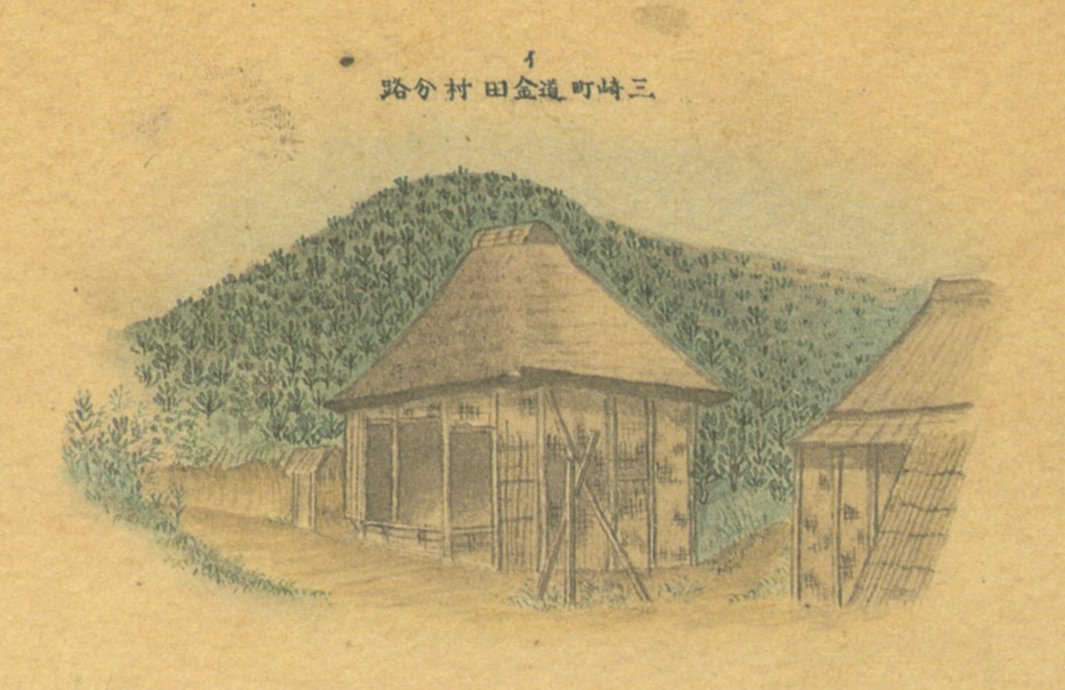 イ
三崎町道金田村分路